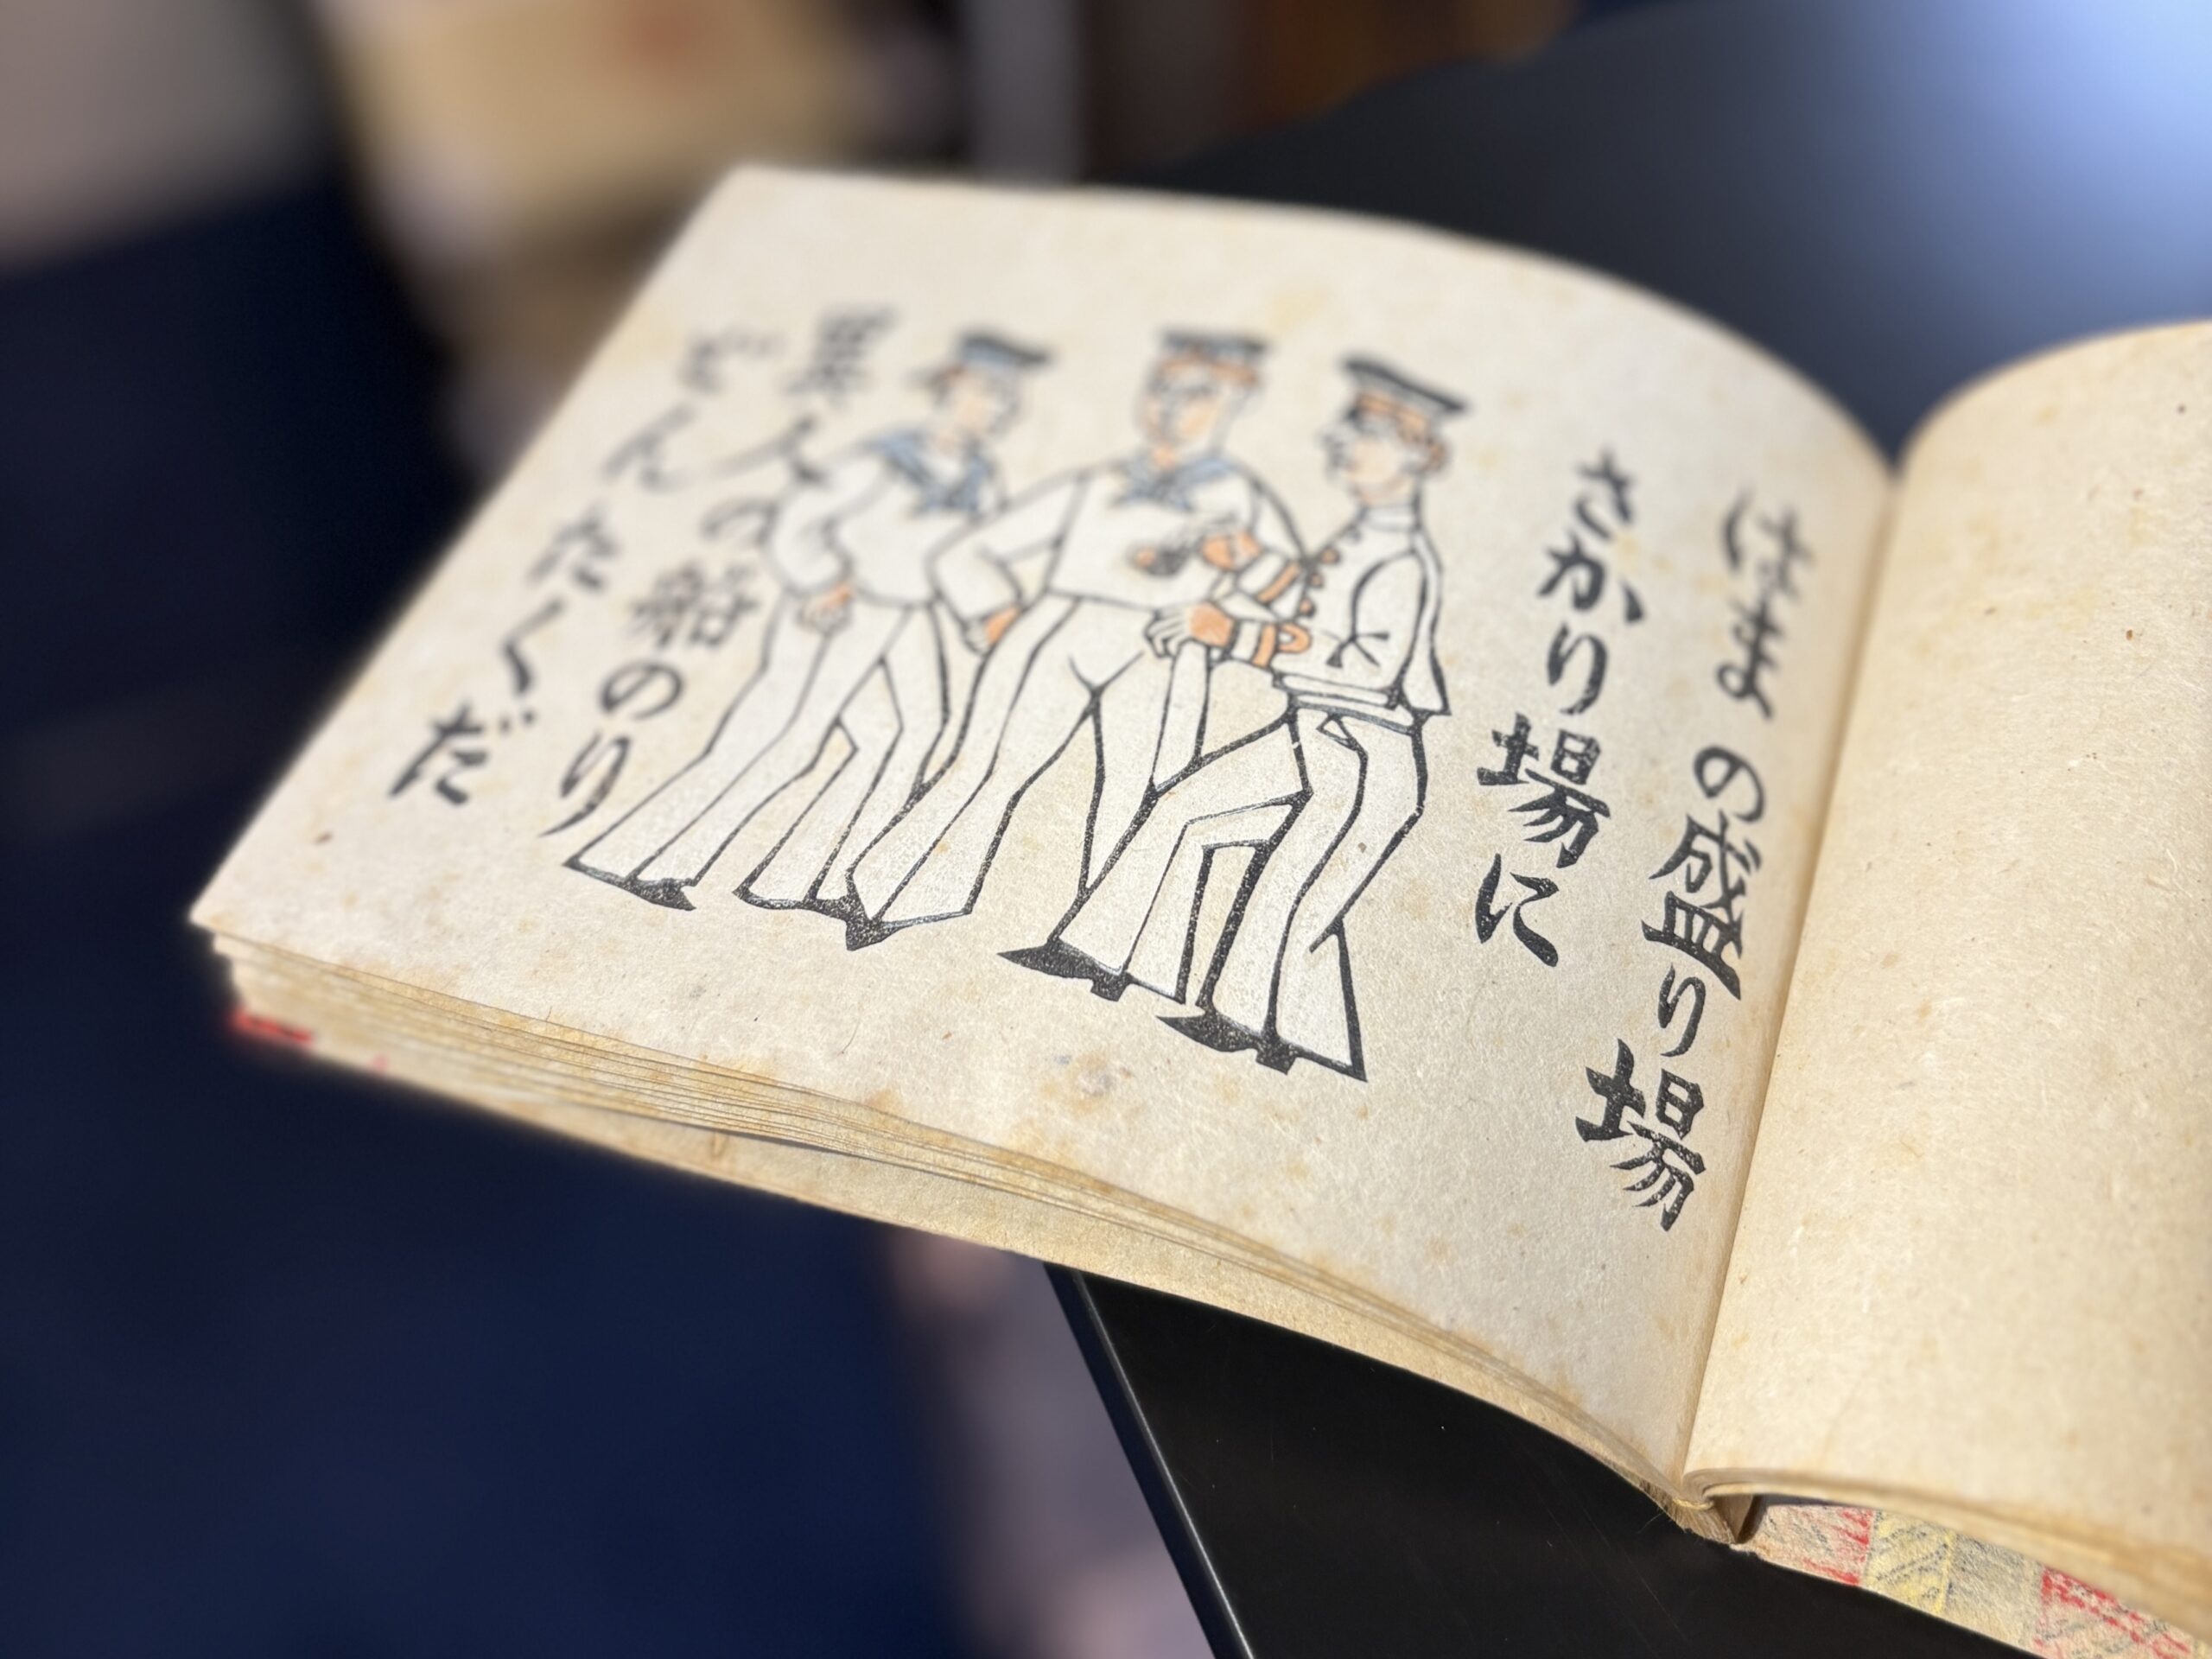 はまの盛り場
さかり場に
異人の船のり
どんたくだ